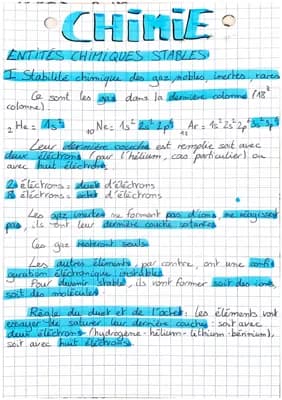 CHIMIE
ENTITÉS CHIMIQUES STABLES
I Stabilité chimique des gaz nobles, inertes, rares
Ce sont les gaz dans la dernière colonne (18è
colonne).
₂He = 1s² ₁₀Ne = 1s² 2s² 2p⁶ Ar = 1s² 2s² 2p⁶ 3s² 3p⁶
Leur dernière couche est remplie soit avec
deux électrons (pour l'hélium, cas particulier) ou
avec huit électrons.
2 électrons = duet d'électrons
8 électrons = octet d'électrons
Les gaz inertes ne forment pas d'ions, ne réagissent
pas, ils ont leur dernière couche saturée.
Ces gaz resteront seuls.
Les autres éléments, par contre, ont une confi
guration électronique instables.
Pour devenir stable, ils vont former soit des ions,
soit des molécules.
Règle du duet et de l'octet : les éléments vont
essayer de saturer leur dernière couche : soit avec
deux électrons (hydrogène - hélium - lithium - béryllium),
soit avec huit électrons.